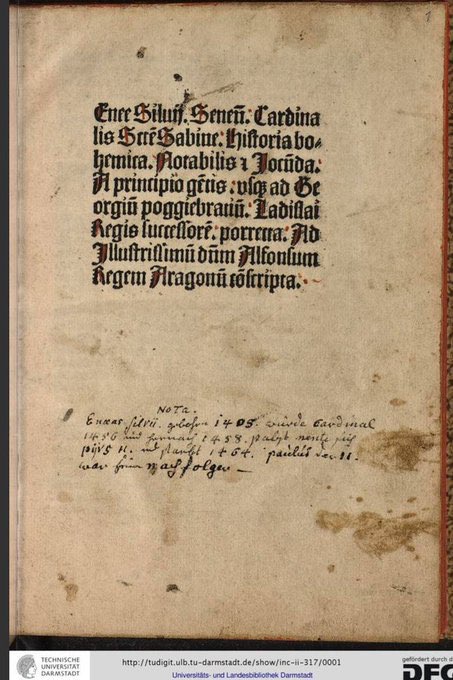 1
Enee Siluij. Seneñ. Cardina
lis Sctẽ Sabine. Historia bo-
hemica. Notabilis ⁊ Jocũda.
A principio gẽtis. vsqꝫ ad Ge
orgiũ poggiebratiũ. Ladislai
Regis successorẽ. porrecta. Ad
Illustrissimũ dñm Alfonsum
Regem Aragonũ cõscripta.
NOTa.
Eneas silvii. gebohrn 1405. wurde Cardinal
1456 und hernach 1458. Pabst nente sich
pijvs II. 1464. paulus der II.
war sein nachfolger
TECHNISCHE
UNIVERSITÄT
DARMSTADT
http://tudigit.ulb.tu-darmstadt.de/show/inc-ii-317/0001
Universitäts- und Landesbibliothek Darmstadt
gefördert durch d
DFG